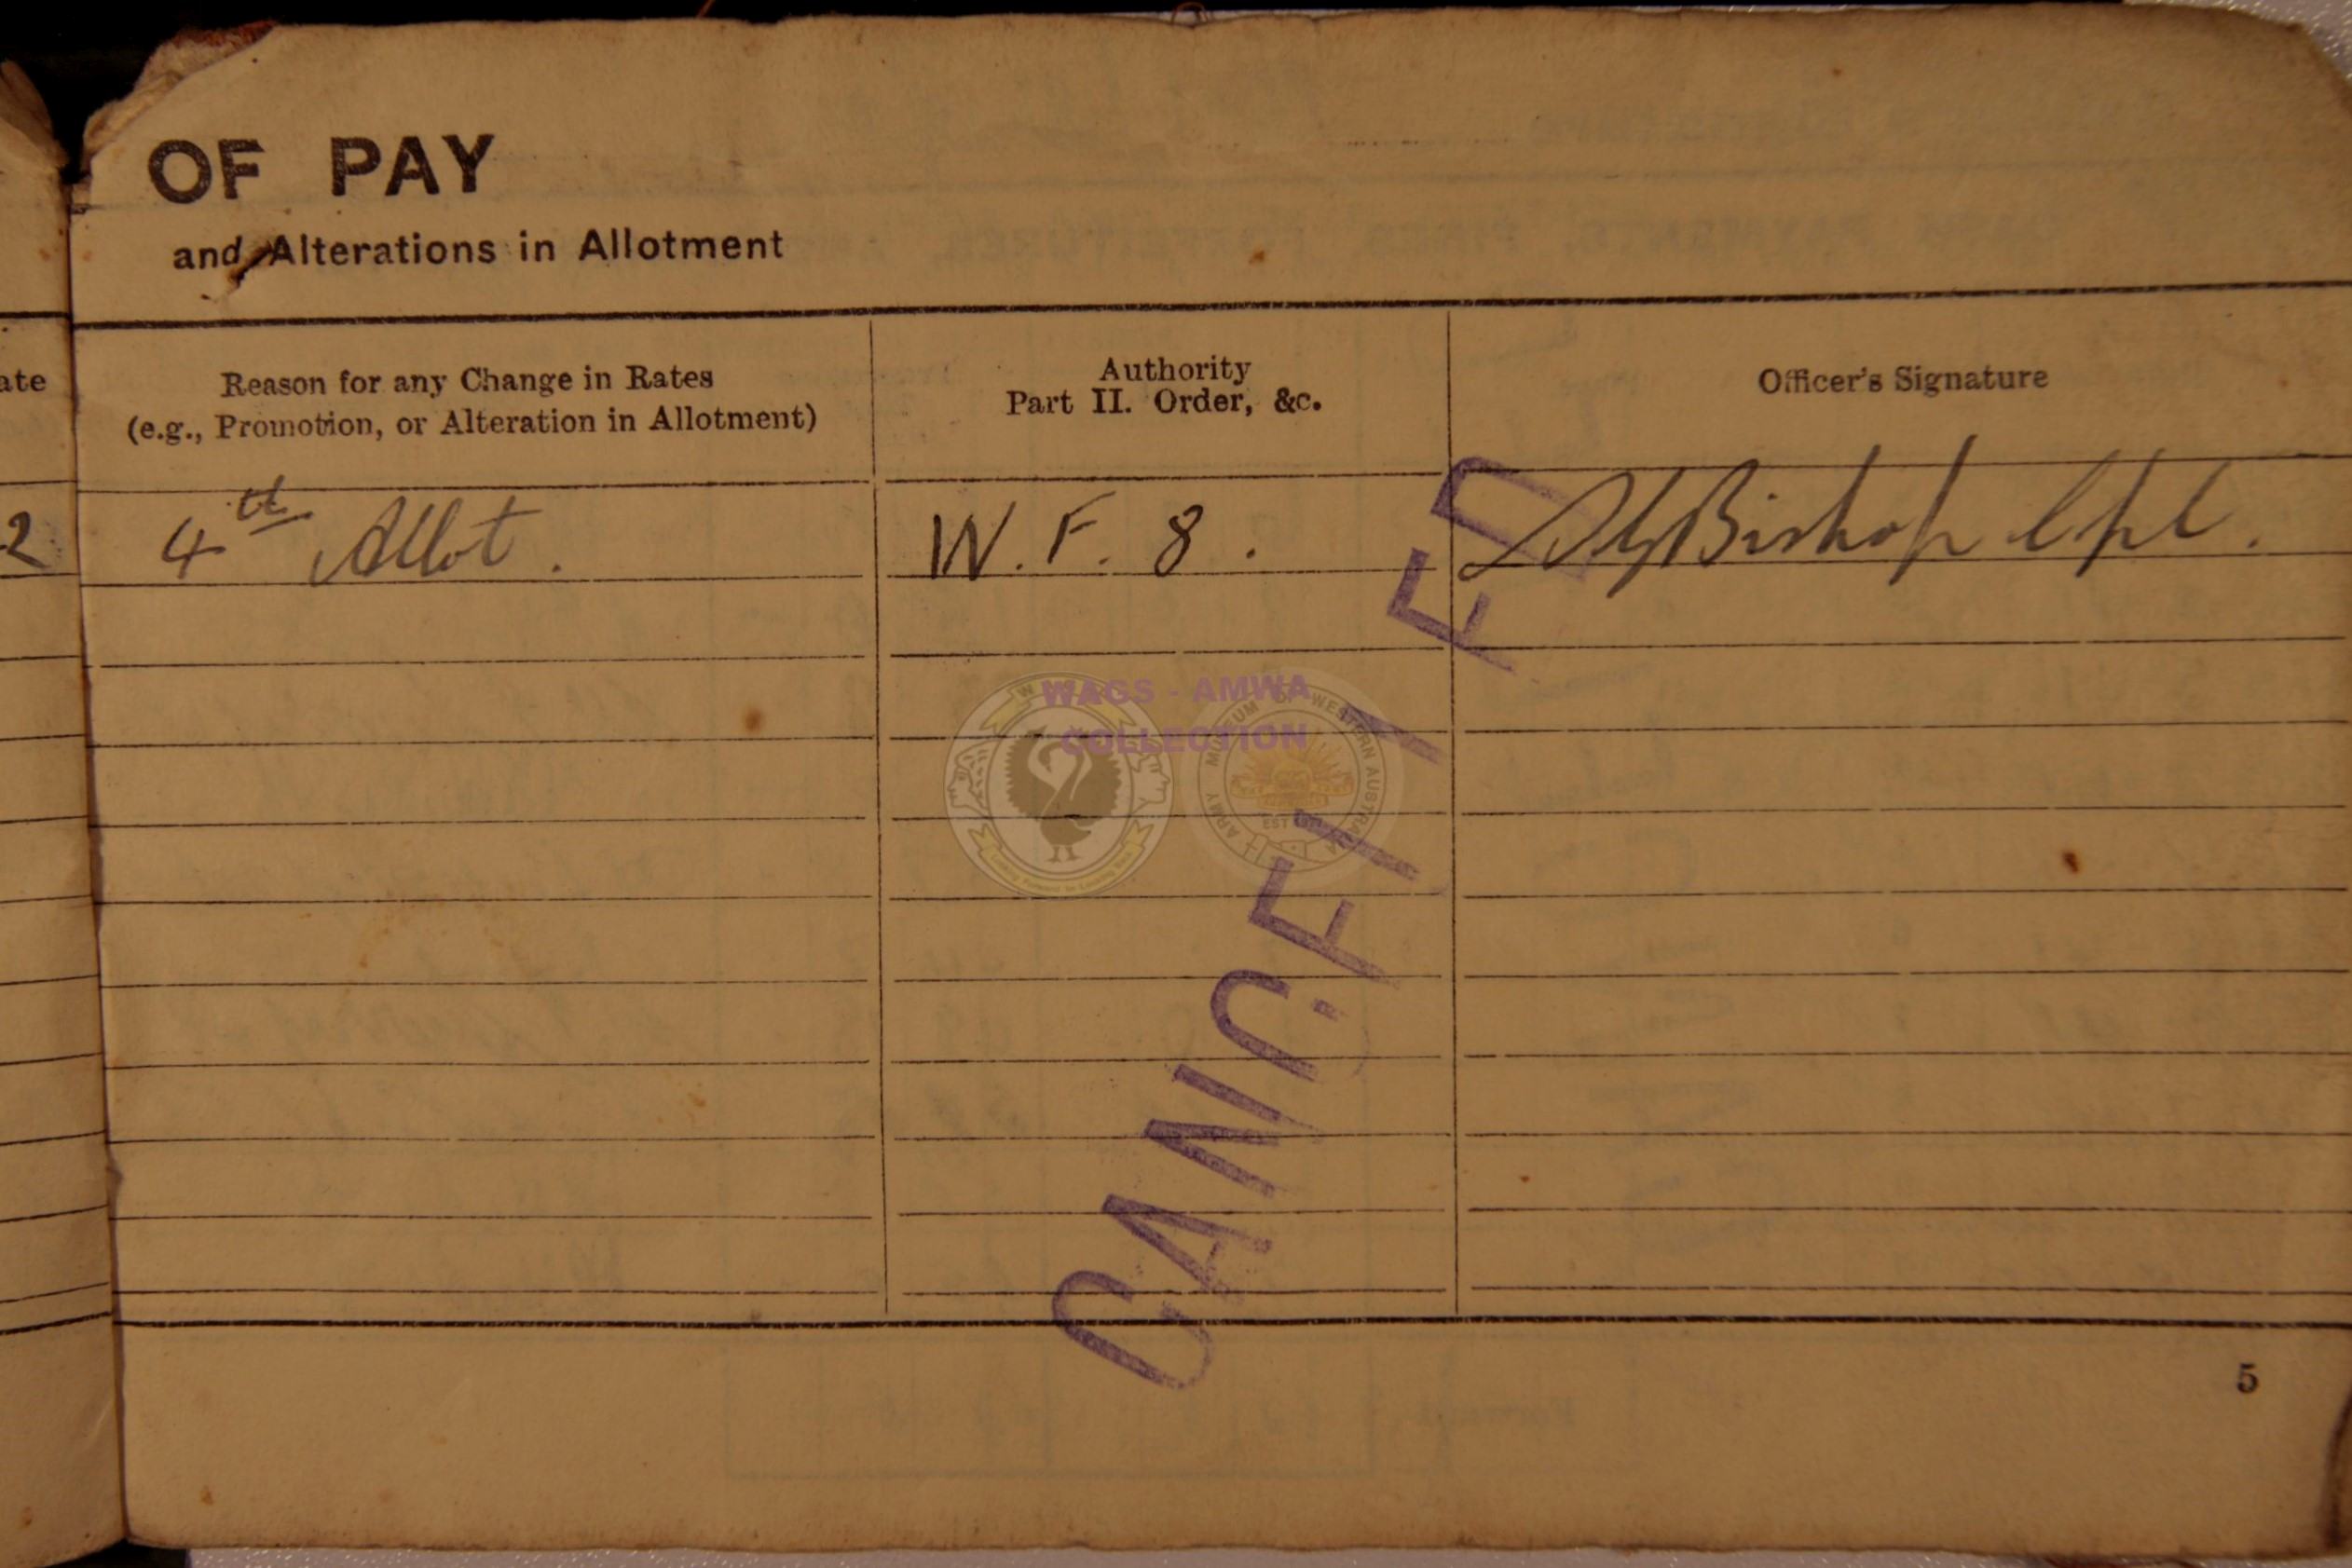 OF PAY
and Alterations in Allotment
ate
Reason for any Change in Rates
(e.g., Promotion, or Alteration in Allotment)
Authority
Part II. Order, &c.
Officer's Signature
2
4th Allot.
W. F. 8.
Bishop Cpl.
WAGS - AMWA
COLLECTION
ARMY MUSEUM OF WESTERN AUSTRALIA
CANCELLED
5